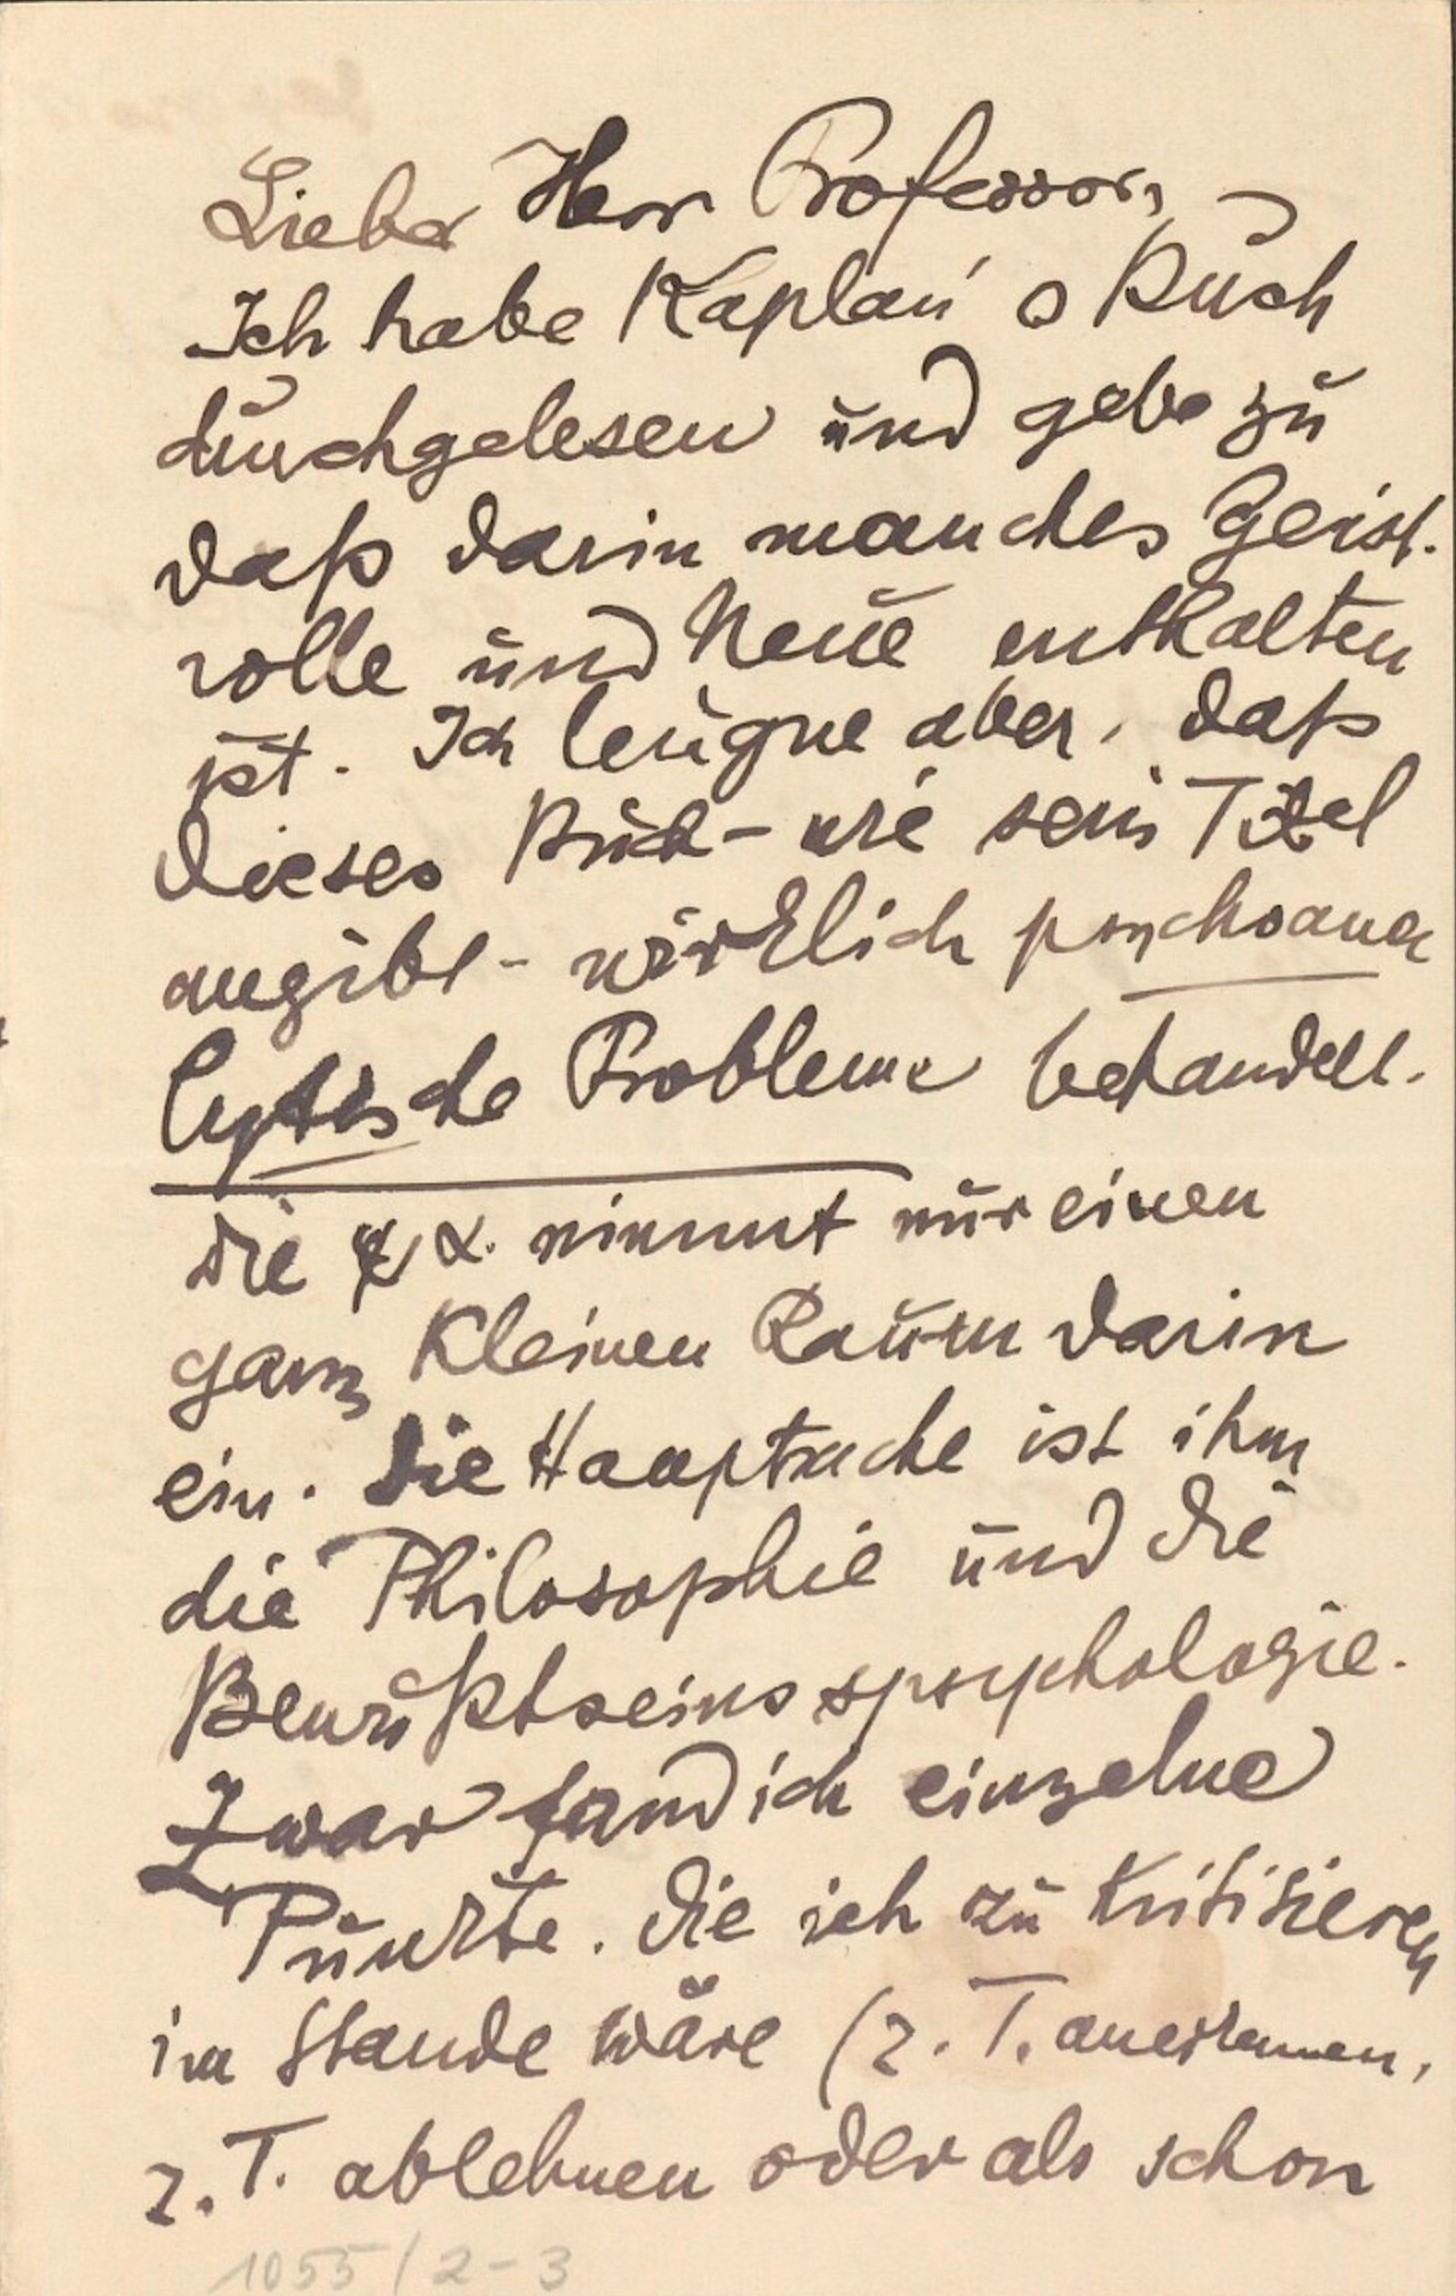 Lieber Herr Professor,
Ich habe Kaplan's Buch
durchgelesen und gebe zu
daß darin manches Geist-
volle und Neue enthalten
ist. Ich leugne aber, daß
dieses Buch – wie sein Titel
angibt – wirklich psychoana
lytische Probleme behandelt.
Die ψ α. nimmt nur einen
ganz kleinen Raum darin
ein. Die Hauptsache ist ihm
die Philosophie und die
Bewußtseinspsychologie.
Zwar fand ich einzelne
Punkte, die ich zu kritisieren
im Stande wäre (z. T. anerkennen,
z. T. ablehnen oder als schon
1055/2-3